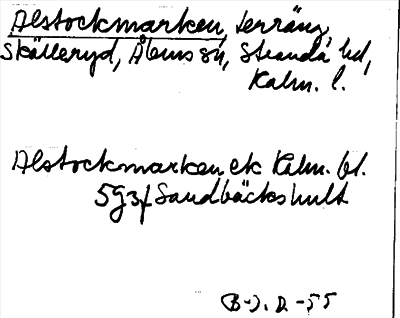 Alstockmarken, terräng,
Skälleryd, Ålems sn, Stranda hd,
Kalm. l.
Alstockmarken, ek Kalm. bl.
5g3f Sandbäckshult
B-J. D. -55